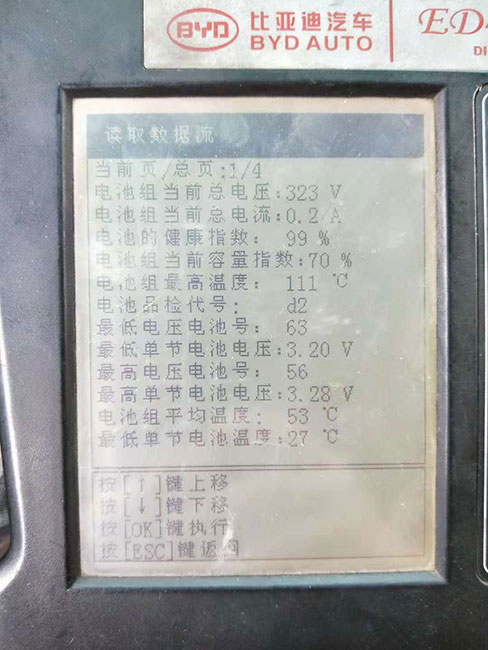 BYD
比亚迪汽车
BYD AUTO
读取数据流
当前页/总页:1/4
电池组当前总电压:323 V
电池组当前总电流:0.2 A
电池的健康指数: 99 %
电池组当前容量指数:70 %
电池组最高温度: 111 ℃
电池品检代号: d2
最低电压电池号: 63
最低单节电池电压:3.20 V
最高电压电池号: 56
最高单节电池电压:3.28 V
电池组平均温度: 53 ℃
最低单节电池温度:27 ℃
按[↑]键上移
按[↓]键下移
按[OK]键执行
按[ESC]键返回